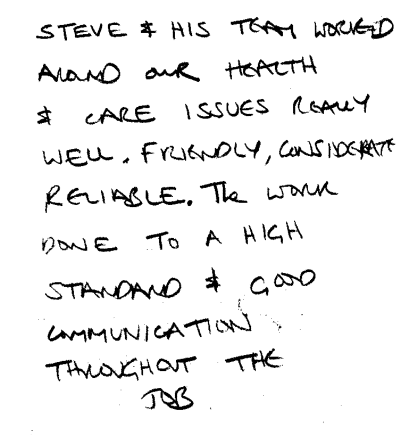 STEVE & HIS TEAM WORKED
AROUND OUR HEALTH
& CARE ISSUES REALLY
WELL. FRIENDLY, CONSIDERATE
RELIABLE. The WORK
DONE TO A HIGH
STANDARD & GOOD
COMMUNICATION
THROUGHOUT THE
JOB